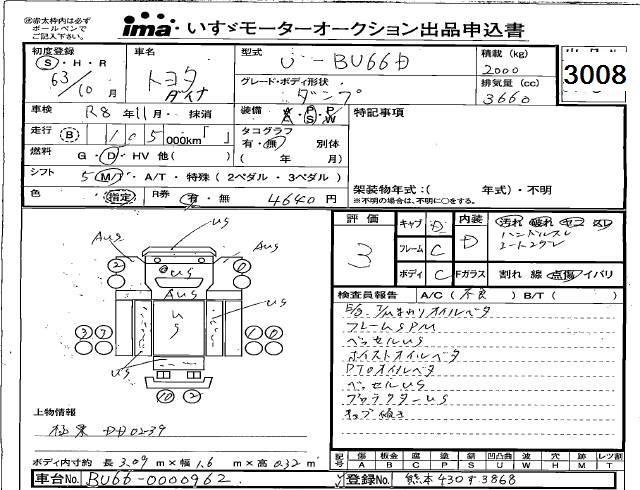 ㊟赤太枠内は必ず
ボールペンで
ご記入下さい。
ima・いすゞモーターオークション出品申込書
初度登録
S・H・R
63/10月
車名
トヨタ
ダイナ
型式
U-BU66D
グレード・ボディ形状
ダンプ
積載 (kg)
2000
排気量 (cc)
3660
3008
車検 R8年11月・抹消
装備 A/A・P/S・P/W
特記事項
走行 B 105 000km「 」
タコグラフ
有・無 別体
( 年 月)
燃料 G・D・HV 他( )
シフト 5 M/T・A/T・特殊(2ペダル・3ペダル)
色 指定 R券 有・無 4640円
架装物年式:( 年式)・不明
※不明の場合は、不明に○をする。
評価
3
キャブ D
フレーム C
ボディ C
内装
D
Fガラス
汚れ 破れ コゲ スレ
ハンドルスレ
シートコゲ
割れ 線 点傷 イバリ
検査員報告 A/C(不良) B/T( )
E/g、T/Mまわりオイルベタ
フレームSPM
ベッセルUS
ホイストオイルベタ
PTOオイルベタ
ベッセルUS
US
AUS
AUS
US
AUS
US
US
US
US
2
上物情報
極東 DD02-39
ボディ内寸約 長3.09m×幅1.6m×高0.32m
記号 傷A 板金B 腐C 塗P 錆S 凹凸曲U 波W 穴H 跡M レツ割T
車台No. BU66-0000962
登録No. 熊本430す3868